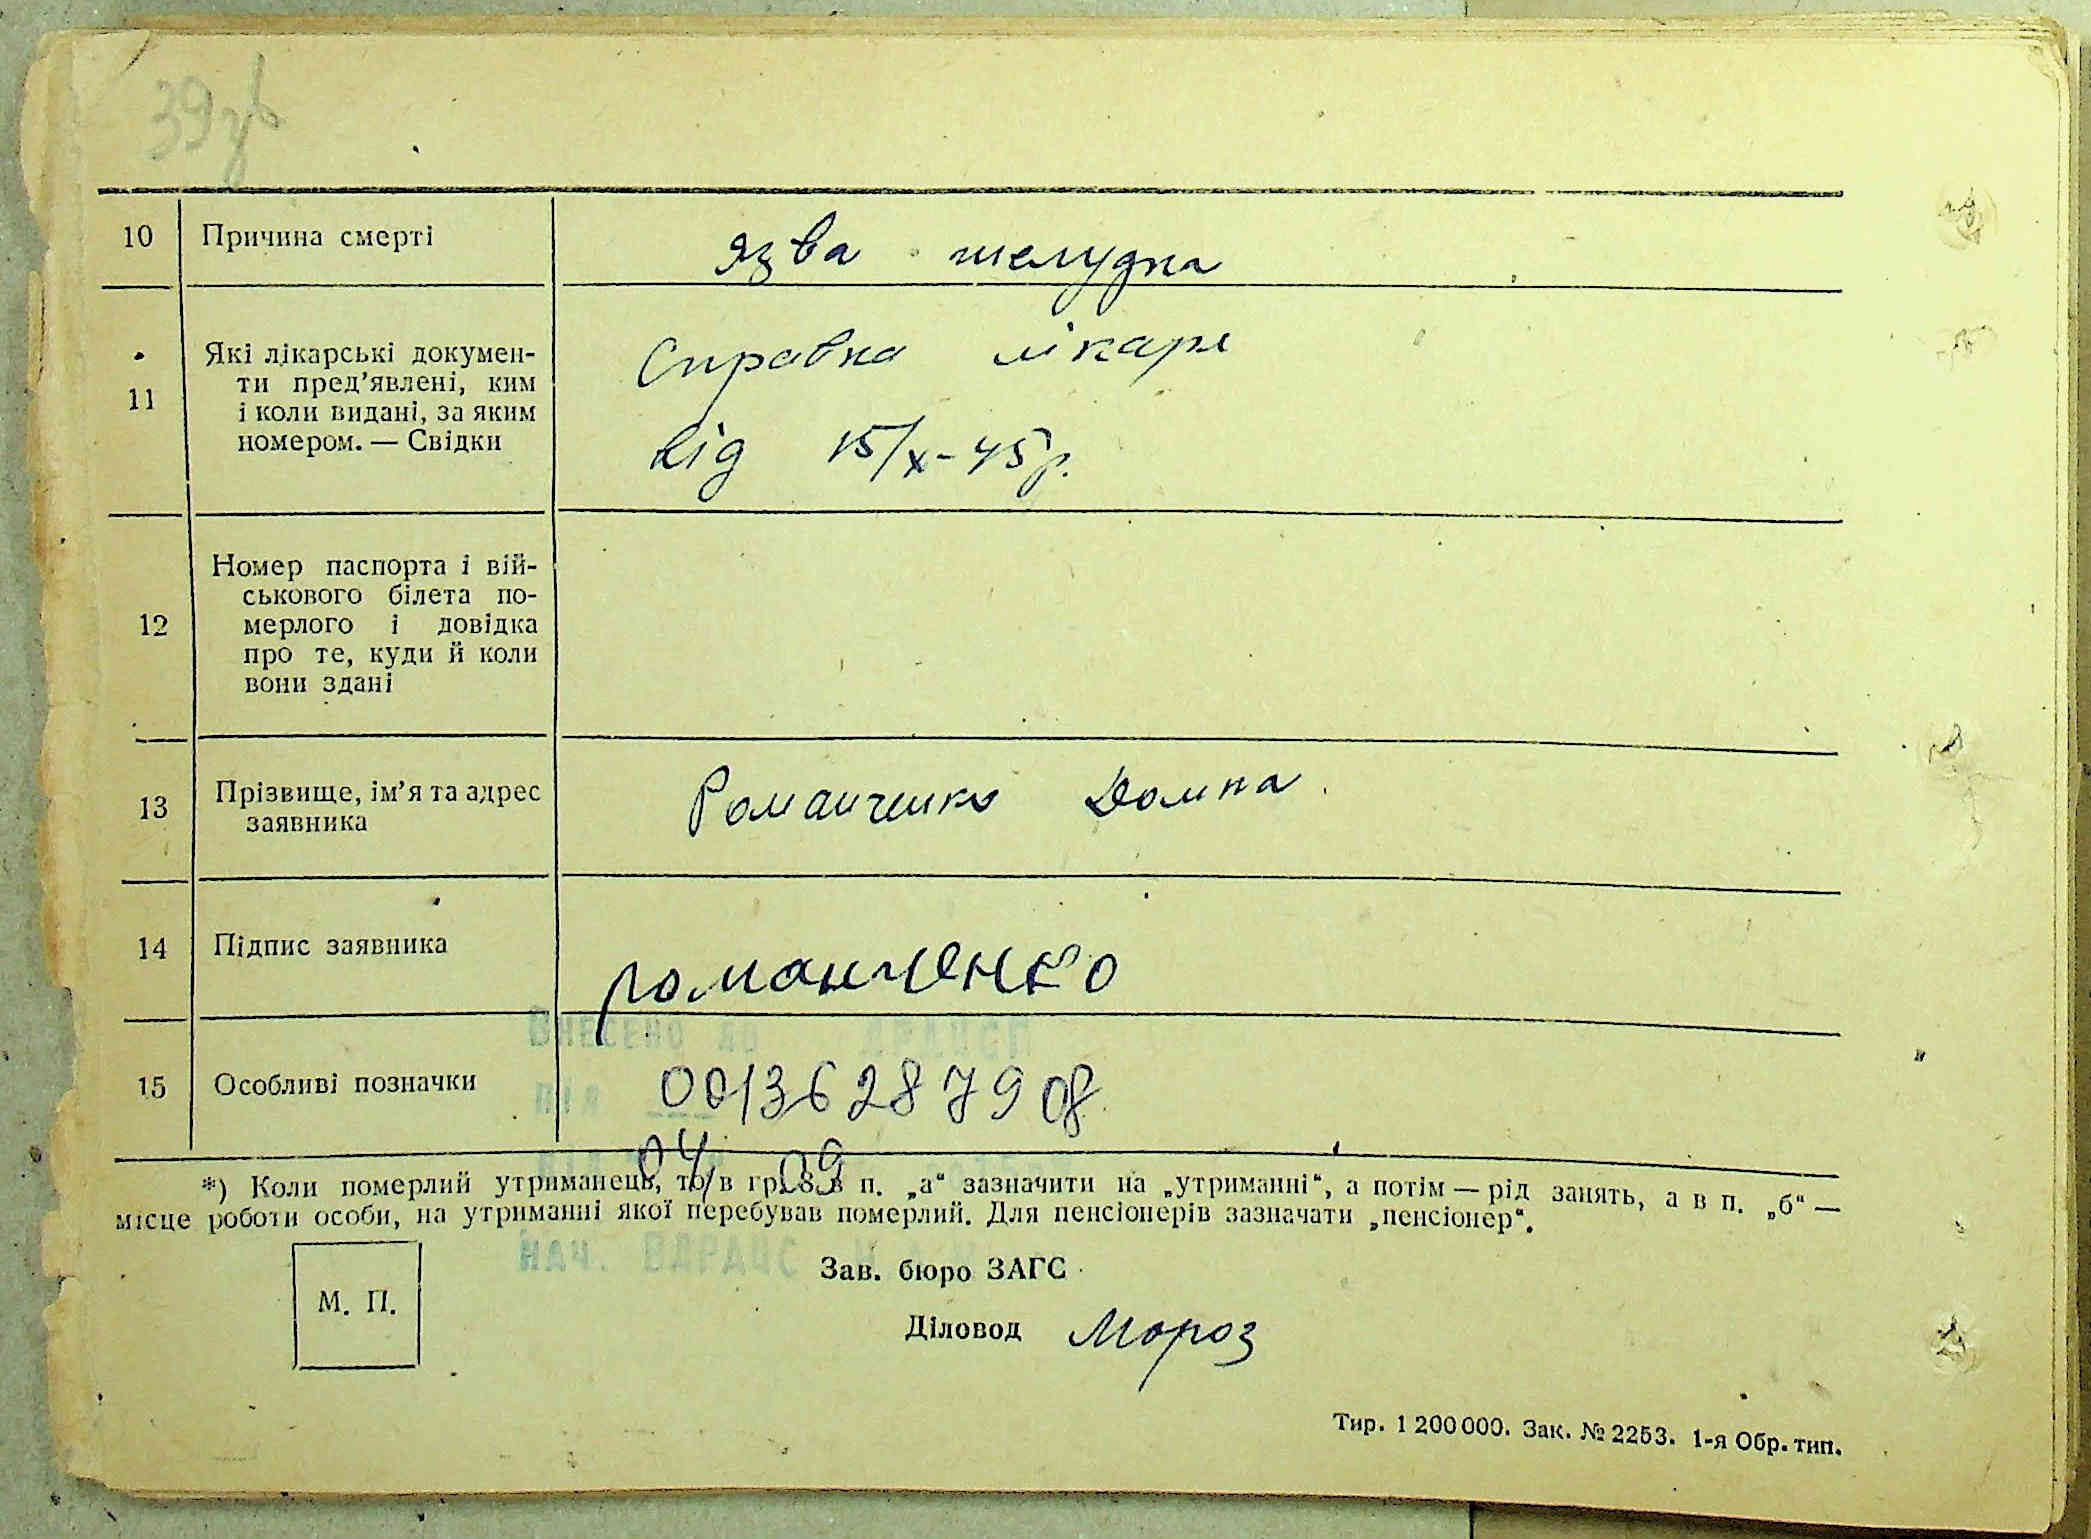 39зв
10 Причина смерті язва желудка
11 Які лікарські докумен-
ти пред’явлені, ким
і коли видані, за яким
номером. — Свідки
Справка лікаря
від 15/X-45р.
12 Номер паспорта і вій-
ськового білета по-
мерлого і довідка
про те, куди й коли
вони здані
13 Прізвище, ім’я та адрес
заявника
Романченко Домна.
14 Підпис заявника Романченко
Внесено до ДРАЦСГ
15 Особливі позначки 00136287908
під
04 09
*) Коли померлий утриманець, то в гр. 8 в п. „а“ зазначити на „утриманні“, а потім — рід занять, а в п. „б“ —
місце роботи особи, на утриманні якої перебував померлий. Для пенсіонерів зазначати „пенсіонер“.
Нач. ВДРАЦС
Зав. бюро ЗАГС
М. П.
Діловод Мороз
Тир. 1 200 000. Зак. № 2253. 1-я Обр. тип.